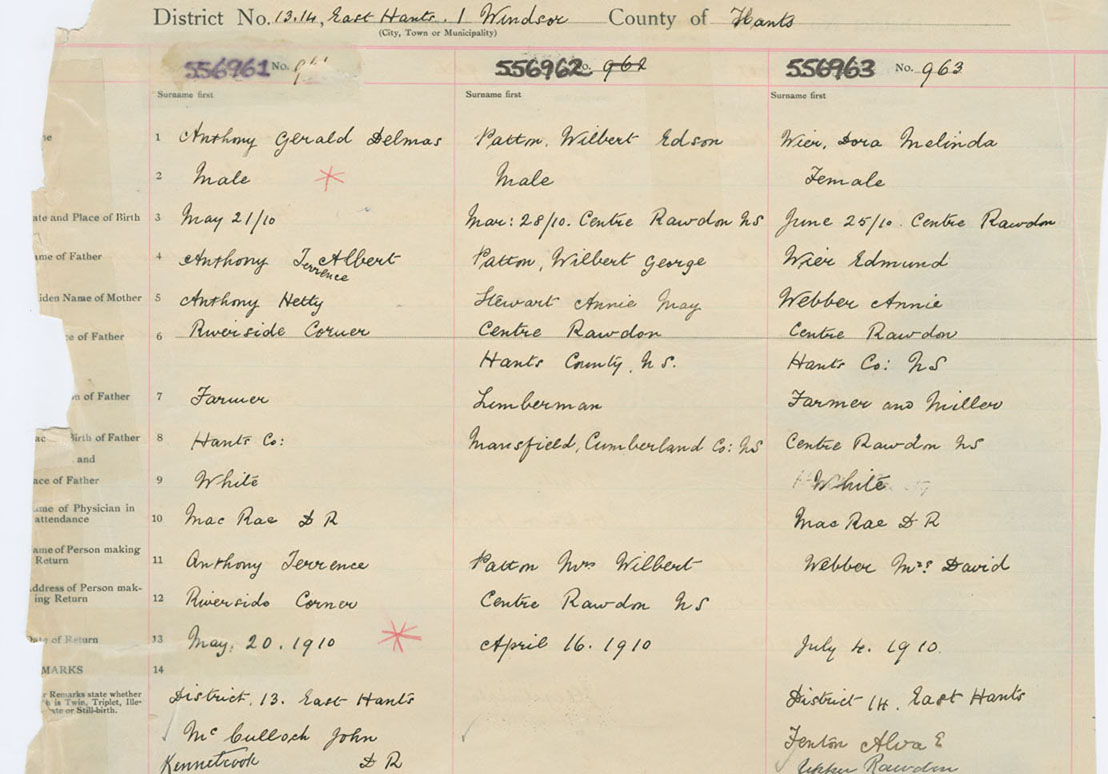 District No. 13.14, East Hants. 1 Windsor County of Hants
(City, Town or Municipality)
556961 No. 556962 o. 962 556963 No. 963
Surname first Surname first Surname first
1 Anthony Gerald Delmas Patton, Wilbert Edson Wier, Dora Melinda
2 Male Male Female
ate and Place of Birth 3 May 21/10 Mar: 28/10. Centre Rawdon NS June 25/10. Centre Rawdon
ame of Father 4 Anthony Terrence Albert Patton, Wilbert George Wier Edmund
iden Name of Mother 5 Anthony Hetty Stewart Annie May Webber Annie
ce of Father 6 Riverside Corner Centre Rawdon Centre Rawdon
Hants County, N.S. Hants Co: NS
n of Father 7 Farmer Lumberman Farmer and Miller
ac Birth of Father 8 Hants Co: Mansfield, Cumberland Co: NS Centre Rawdon NS
and
ace of Father 9 White White
me of Physician in
attendance 10 Mac Rae D R Mac Rae D R
ame of Person making
Return 11 Anthony Terrence Patton Mrs Wilbert Webber Mrs David
ddress of Person mak-
ing Return 12 Riverside Corner Centre Rawdon NS
ate of Return 13 May, 20. 1910 April 16. 1910 July 4. 1910.
MARKS 14
r Remarks state whether
is Twin, Triplet, Ille-
ate or Still-birth.
District. 13. East Hants District 14. East Hants
McCulloch John Fenton Alva E
Kennetcook D R Upper Rawdon